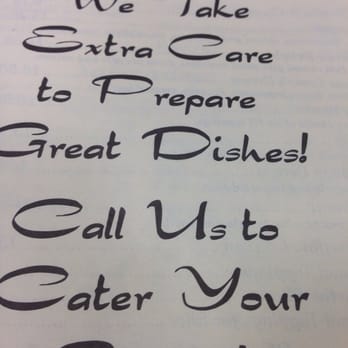 We Take
Extra Care
to Prepare
Great Dishes!
Call Us to
Cater Your